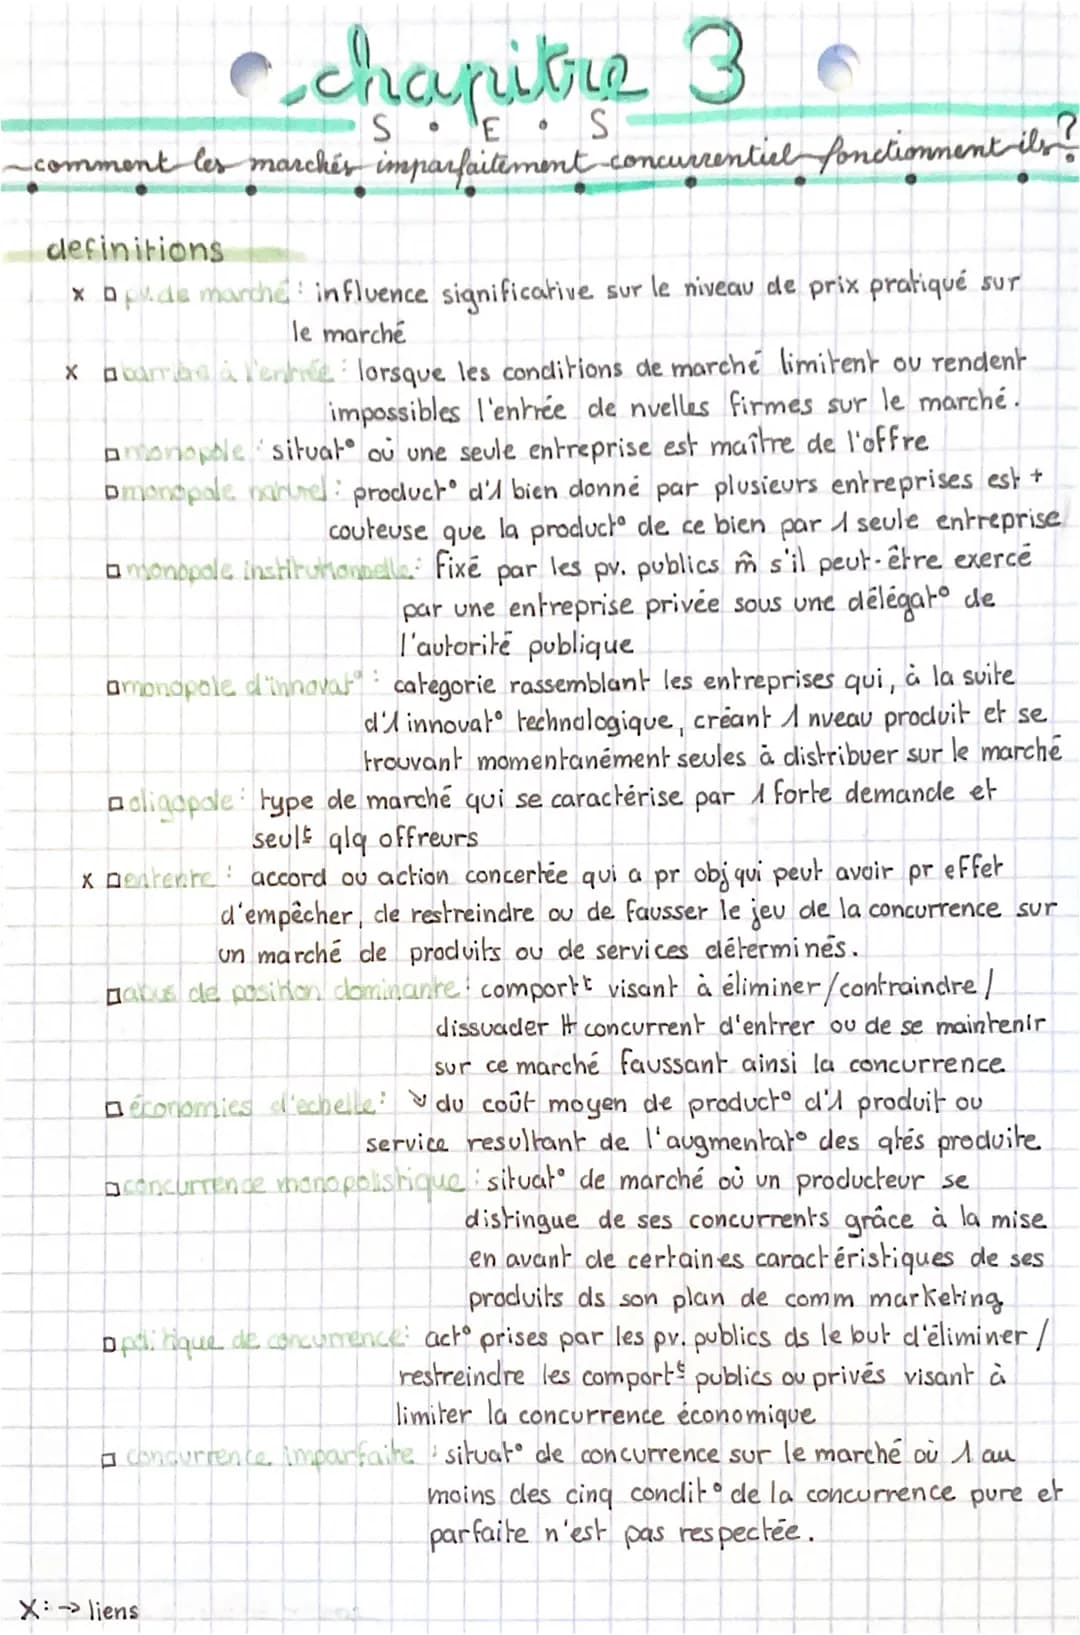 chapitre 3
S . E . S
comment les marchés imparfaitement concurrentiel fonctionnent ils ?
definitions
x □ pv. de marché : influence significative sur le niveau de prix pratiqué sur
le marché
x □ barrière à l'entrée : lorsque les conditions de marché limitent ou rendent
impossibles l'entrée de nvelles firmes sur le marché.
□ monopole : situat° où une seule entreprise est maître de l'offre
□ monopole naturel : product° d'1 bien donné par plusieurs entreprises est +
couteuse que la product° de ce bien par 1 seule entreprise
□ monopole institutionnelle : fixé par les pv. publics m̂ s'il peut-être exercé
par une entreprise privée sous une délégat° de
l'autorité publique
□ monopole d'innovat° : categorie rassemblant les entreprises qui, à la suite
d'1 innovat° technologique, créant 1 nveau produit et se
trouvant momentanément seules à distribuer sur le marché
□ oligopole : type de marché qui se caractérise par 1 forte demande et
seulᵗ qlq offreurs
x □ entente : accord ou action concertée qui a pr obj qui peut avoir pr effet
d'empêcher, de restreindre ou de fausser le jeu de la concurrence sur
un marché de produits ou de services déterminés.
□ abus de position dominante : comportᵗ visant à éliminer/contraindre/
dissuader tt concurrent d'entrer ou de se maintenir
sur ce marché faussant ainsi la concurrence
□ économies d'echelle : ↘ du coût moyen de product° d'1 produit ou
service resultant de l'augmentat° des qtés produite
□ concurrence monopolistique : situat° de marché où un producteur se
distingue de ses concurrents grâce à la mise
en avant de certaines caractéristiques de ses
produits ds son plan de comm marketing
□ politique de concurrence : act° prises par les pv. publics ds le but d'éliminer/
restreindre les comportᵗˢ publics ou privés visant à
limiter la concurrence économique
□ concurrence imparfaite : situat° de concurrence sur le marché où 1 au
moins des cinq condit° de la concurrence pure et
parfaite n'est pas respectée.
X : → liens